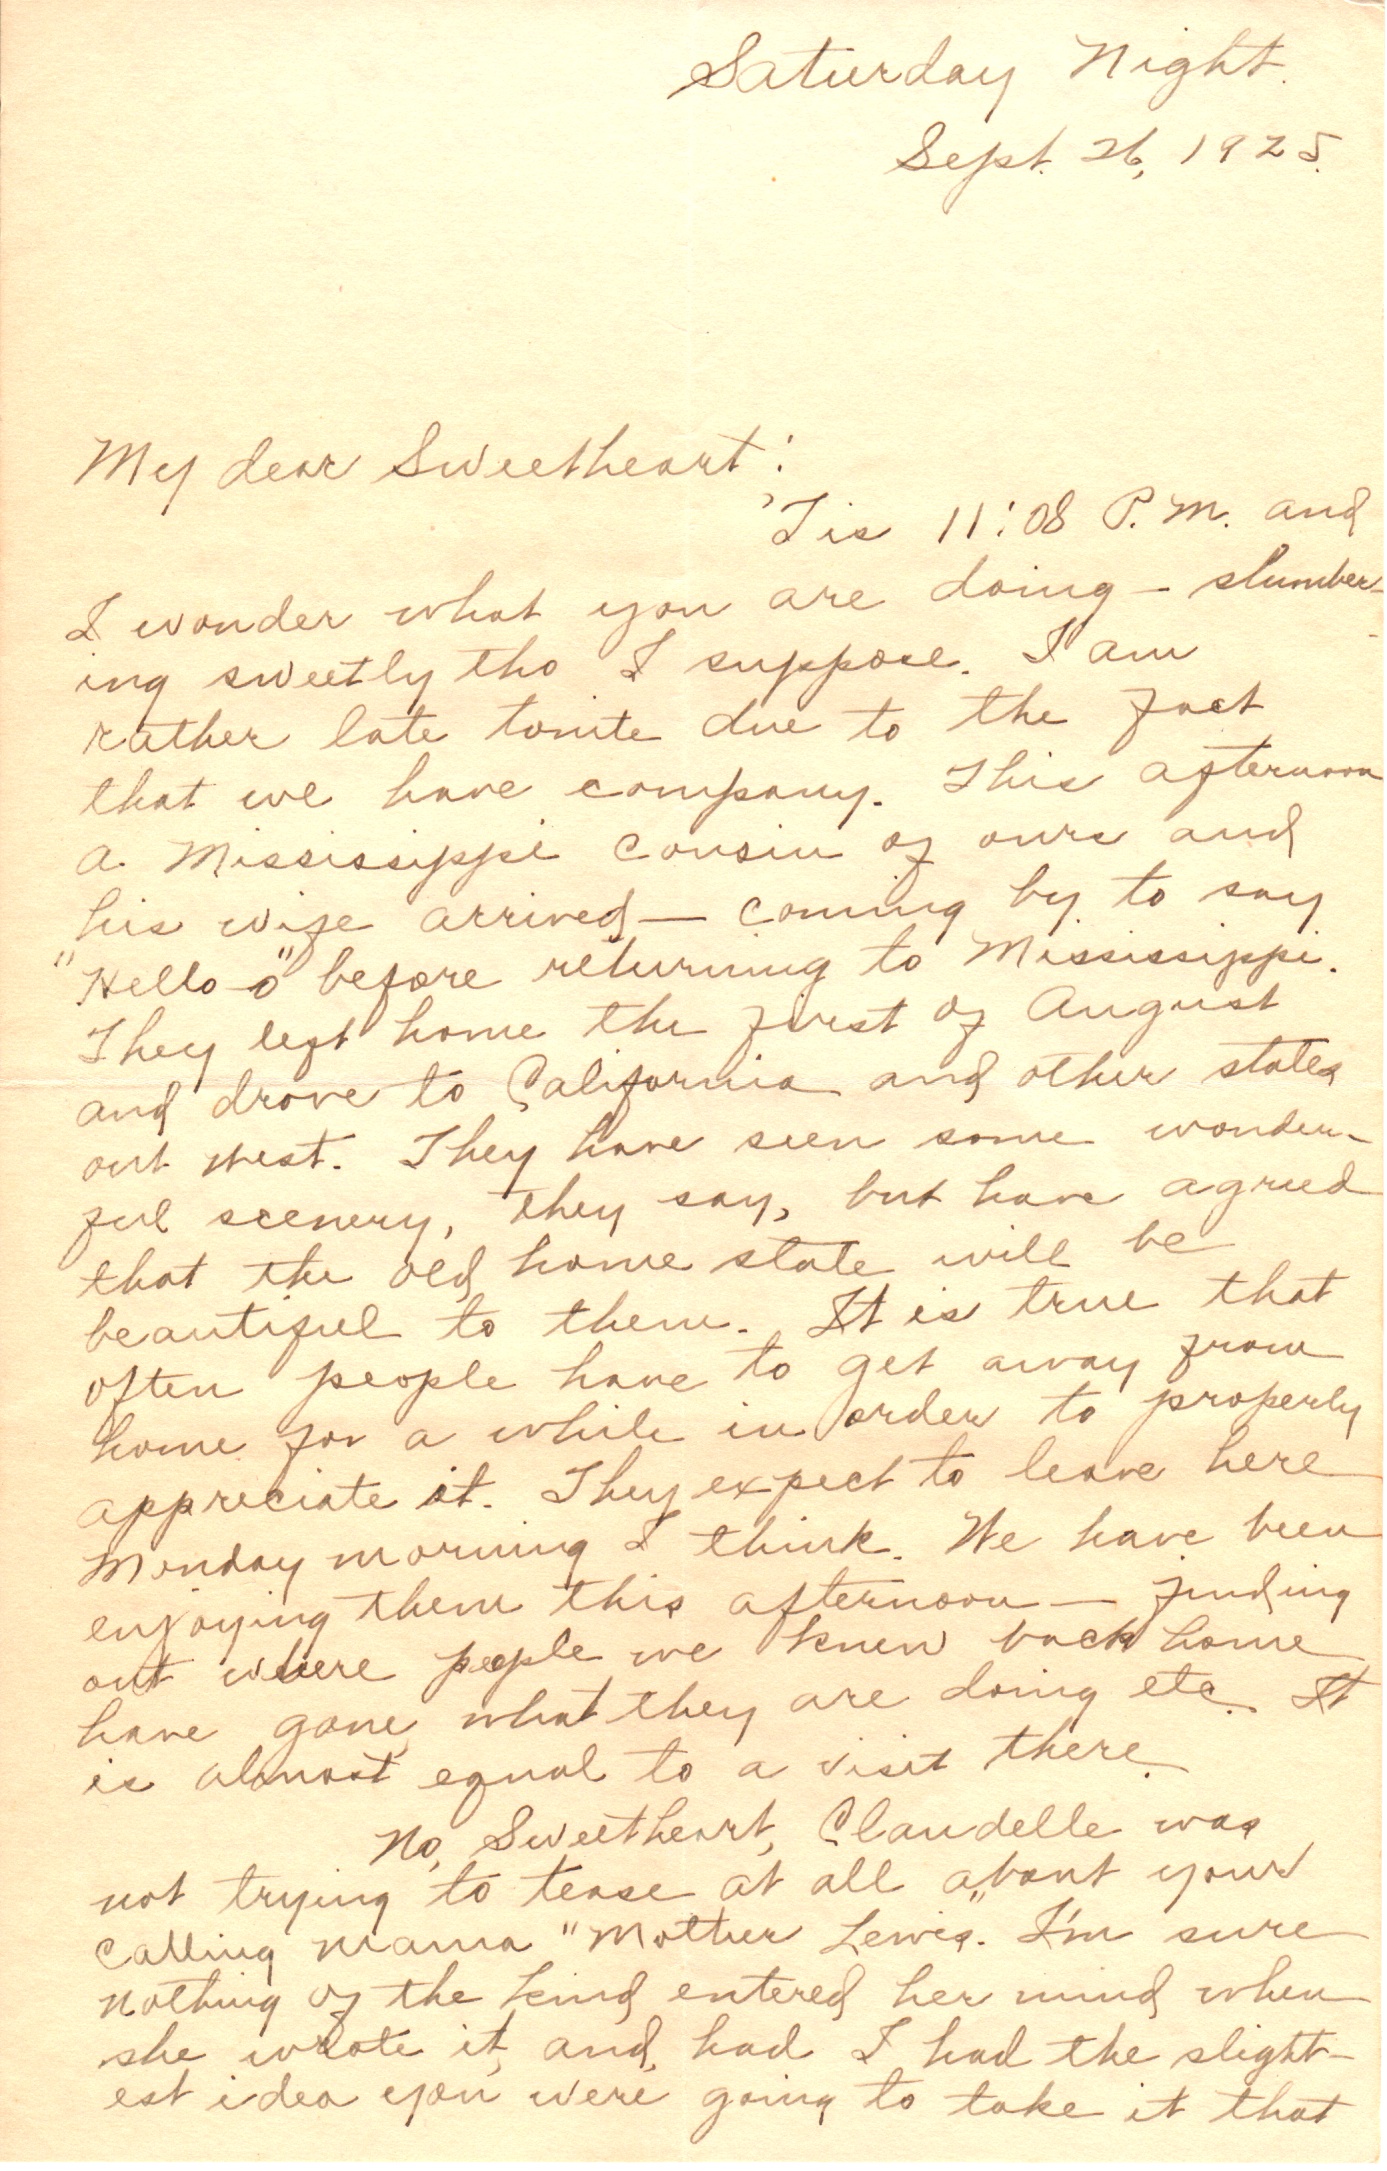 Saturday Night.
Sept. 26, 1925.
My dear Sweetheart:
'Tis 11:08 P.M. and
I wonder what you are doing - slumber-
ing sweetly tho I suppose. I am
rather late tonite due to the fact
that we have company. This afternoon
a Mississippi cousin of ours and
his wife arrived — coming by to say
"Hello-o" before returning to Mississippi.
They left home the first of August
and drove to California and other states
out west. They have seen some wonder-
ful scenery, they say, but have agreed
that the old home state will be
beautiful to them. It is true that
often people have to get away from
home for a while in order to properly
appreciate it. They expect to leave here
Monday morning I think. We have been
enjoying them this afternoon — finding
out where people we knew back home
have gone, what they are doing etc. It
is almost equal to a visit there.
No, Sweetheart, Claudelle was
not trying to tease at all about your
calling mama "Mother Lewis". I'm sure
nothing of the kind entered her mind when
she wrote it, and, had I had the slight-
est idea you were going to take it that